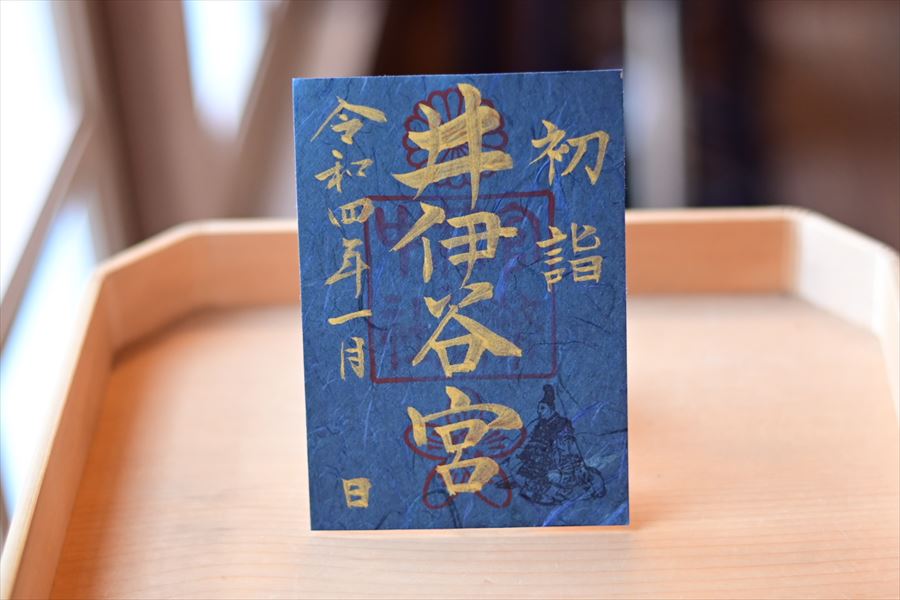 初詣
井伊谷宮
令和四年一月 日